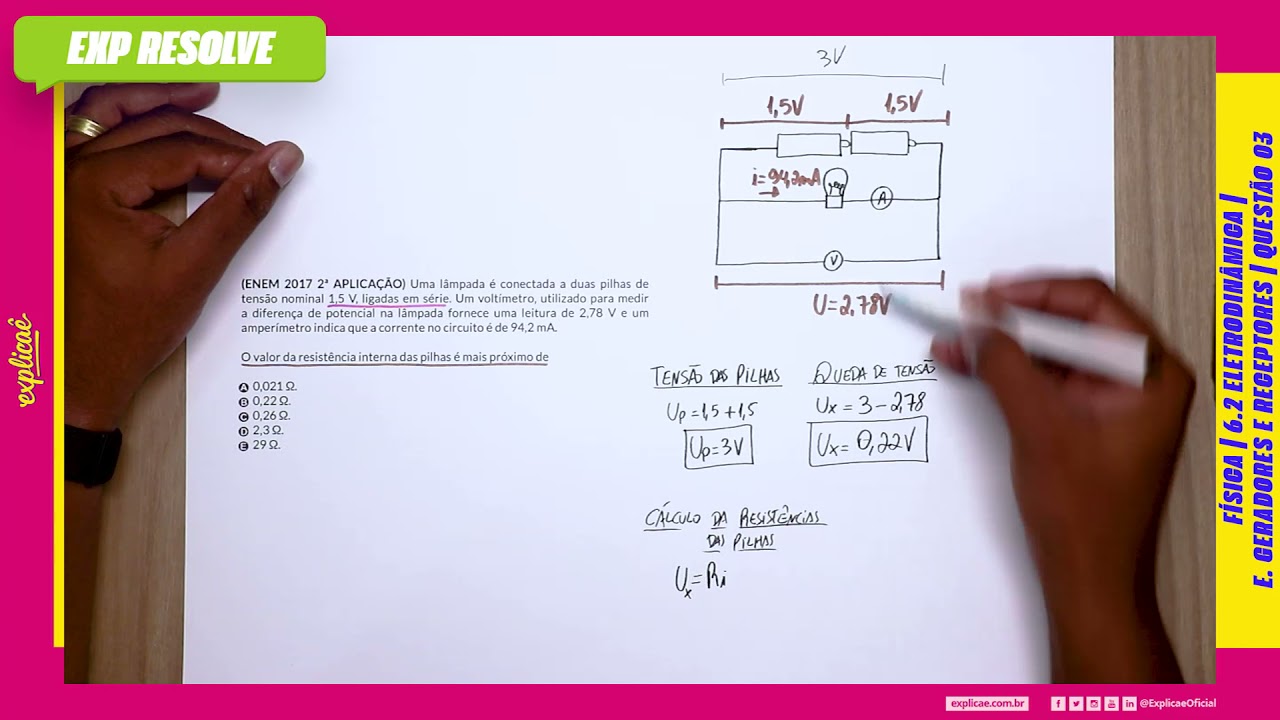 EXP RESOLVE
explicaê
3V
1,5V 1,5V
i=94,2mA
A
V
U=2,78V
(ENEM 2017 2ª APLICAÇÃO) Uma lâmpada é conectada a duas pilhas de
tensão nominal 1,5 V, ligadas em série. Um voltímetro, utilizado para medir
a diferença de potencial na lâmpada fornece uma leitura de 2,78 V e um
amperímetro indica que a corrente no circuito é de 94,2 mA.
O valor da resistência interna das pilhas é mais próximo de
A 0,021 Ω.
B 0,22 Ω.
C 0,26 Ω.
D 2,3 Ω.
E 29 Ω.
TENSÃO DAS PILHAS
Up=1,5+1,5
Up=3V
QUEDA DE TENSÃO
Ux=3-2,78
Ux=0,22V
CÁLCULO DA RESISTÊNCIAS
DAS PILHAS
Ux=Ri
FÍSICA | 6.2 ELETRODINÂMICA |
E. GERADORES E RECEPTORES | QUESTÃO 03
explicae.com.br
@ExplicaeOficial